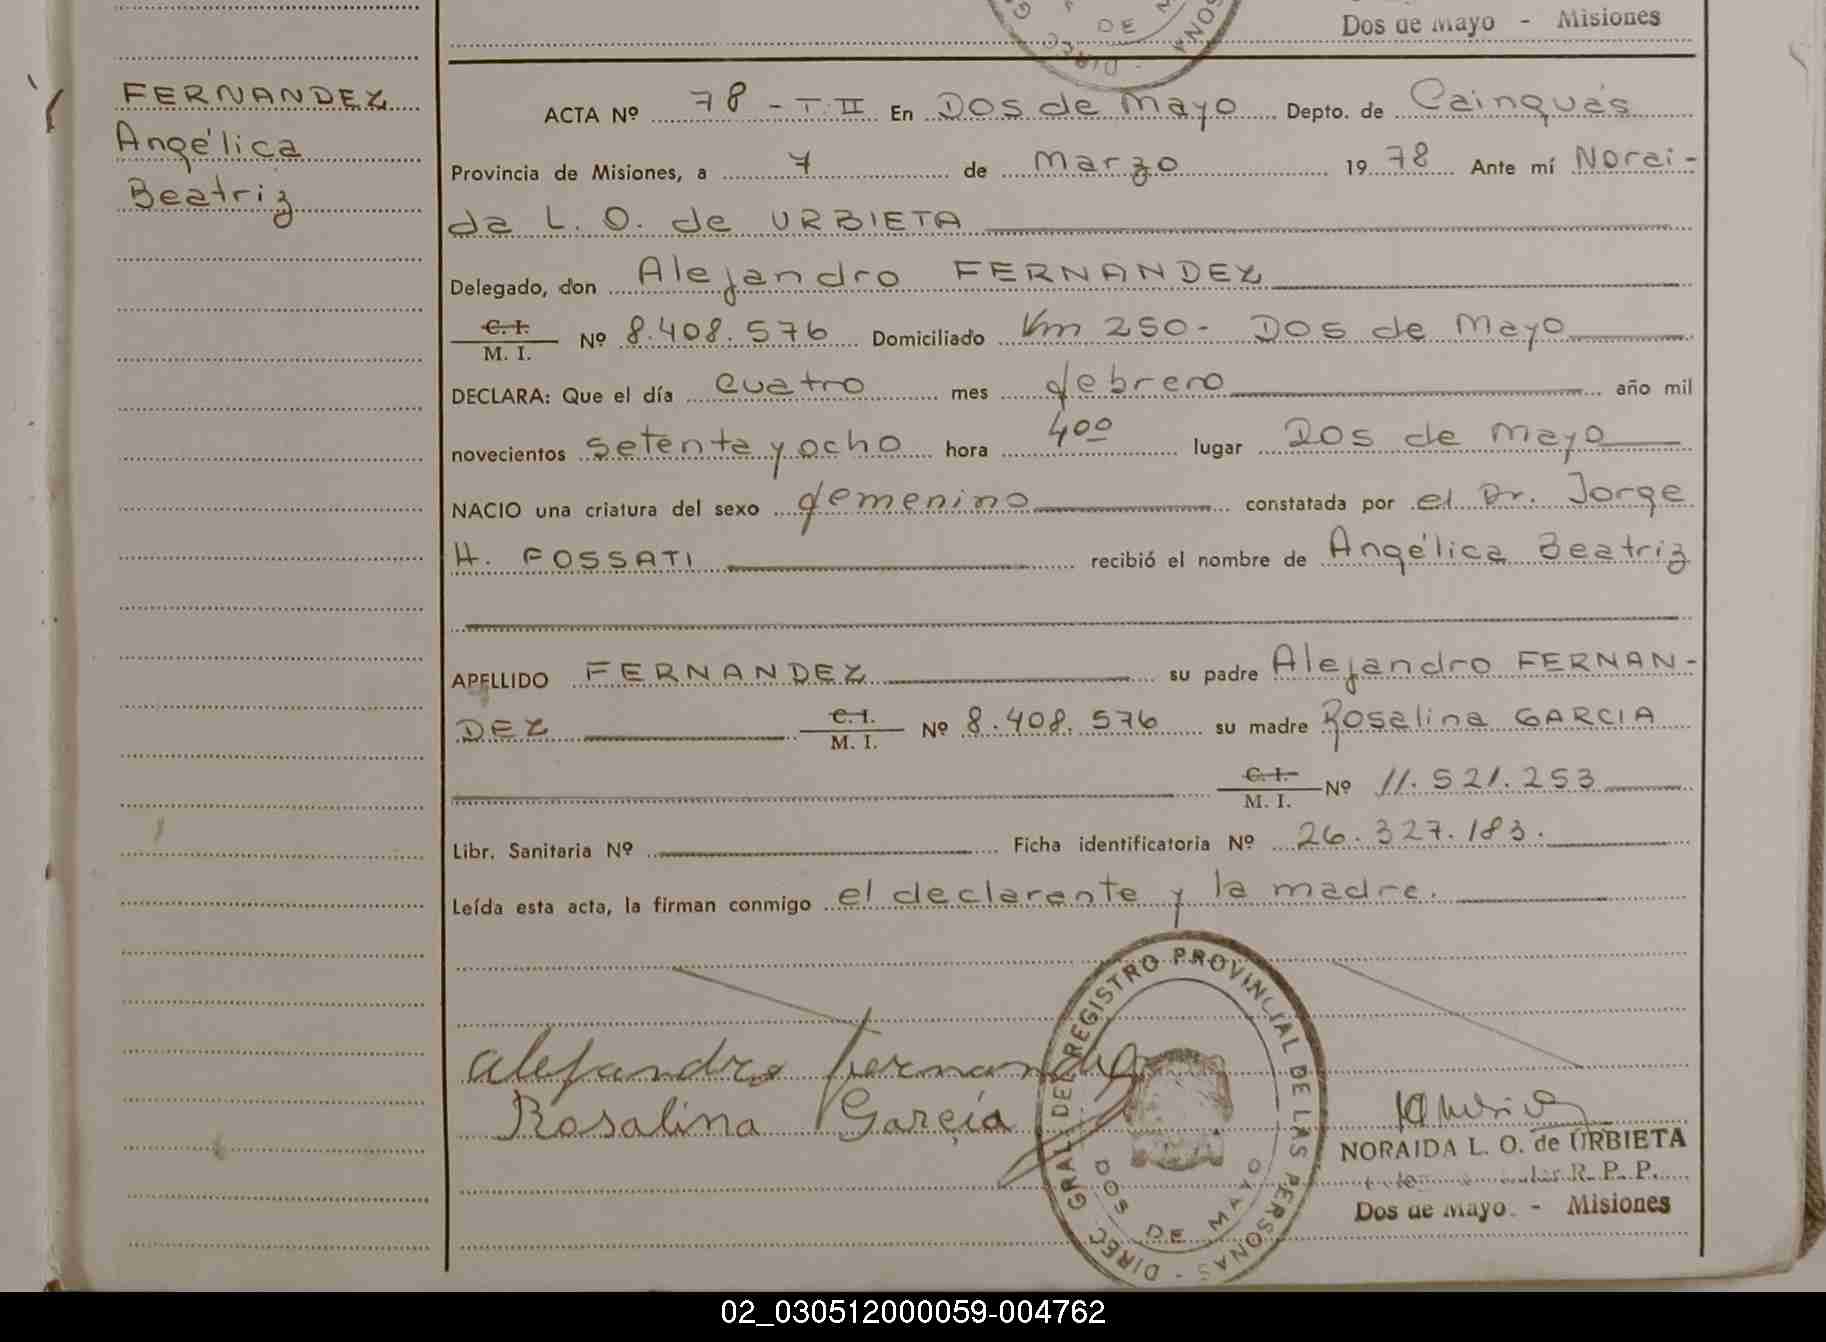 Dos de Mayo - Misiones
FERNANDEZ
Angélica
Beatriz
ACTA Nº 78 - T. II En Dos de Mayo Depto. de Cainguás
Provincia de Misiones, a 7 de Marzo 1978 Ante mí Norai-
da L. O. de URBIETA
Delegado, don Alejandro FERNANDEZ
C. I.
M. I. Nº 8.408.576 Domiciliado Km 250- Dos de Mayo
DECLARA: Que el día cuatro mes febrero año mil
novecientos setenta y ocho hora 4oo lugar Dos de Mayo
NACIO una criatura del sexo femenino constatada por el Dr. Jorge
H. FOSSATI recibió el nombre de Angélica Beatriz
APELLIDO FERNANDEZ su padre Alejandro FERNAN-
DEZ C. I. M. I. Nº 8.408.576 su madre Rosalina GARCIA
C. I. M. I. Nº 11.521.253
Libr. Sanitaria Nº Ficha identificatoria Nº 26.327.183.
Leída esta acta, la firman conmigo el declarante y la madre.
alejandro fernandez
Rosalina García
DIREC. GRAL. DEL REGISTRO PROVINCIAL DE LAS PERSONAS -
DOS DE MAYO
NORAIDA L. O. de URBIETA
R. P. P.
Dos de Mayo. - Misiones
02_030512000059-004762